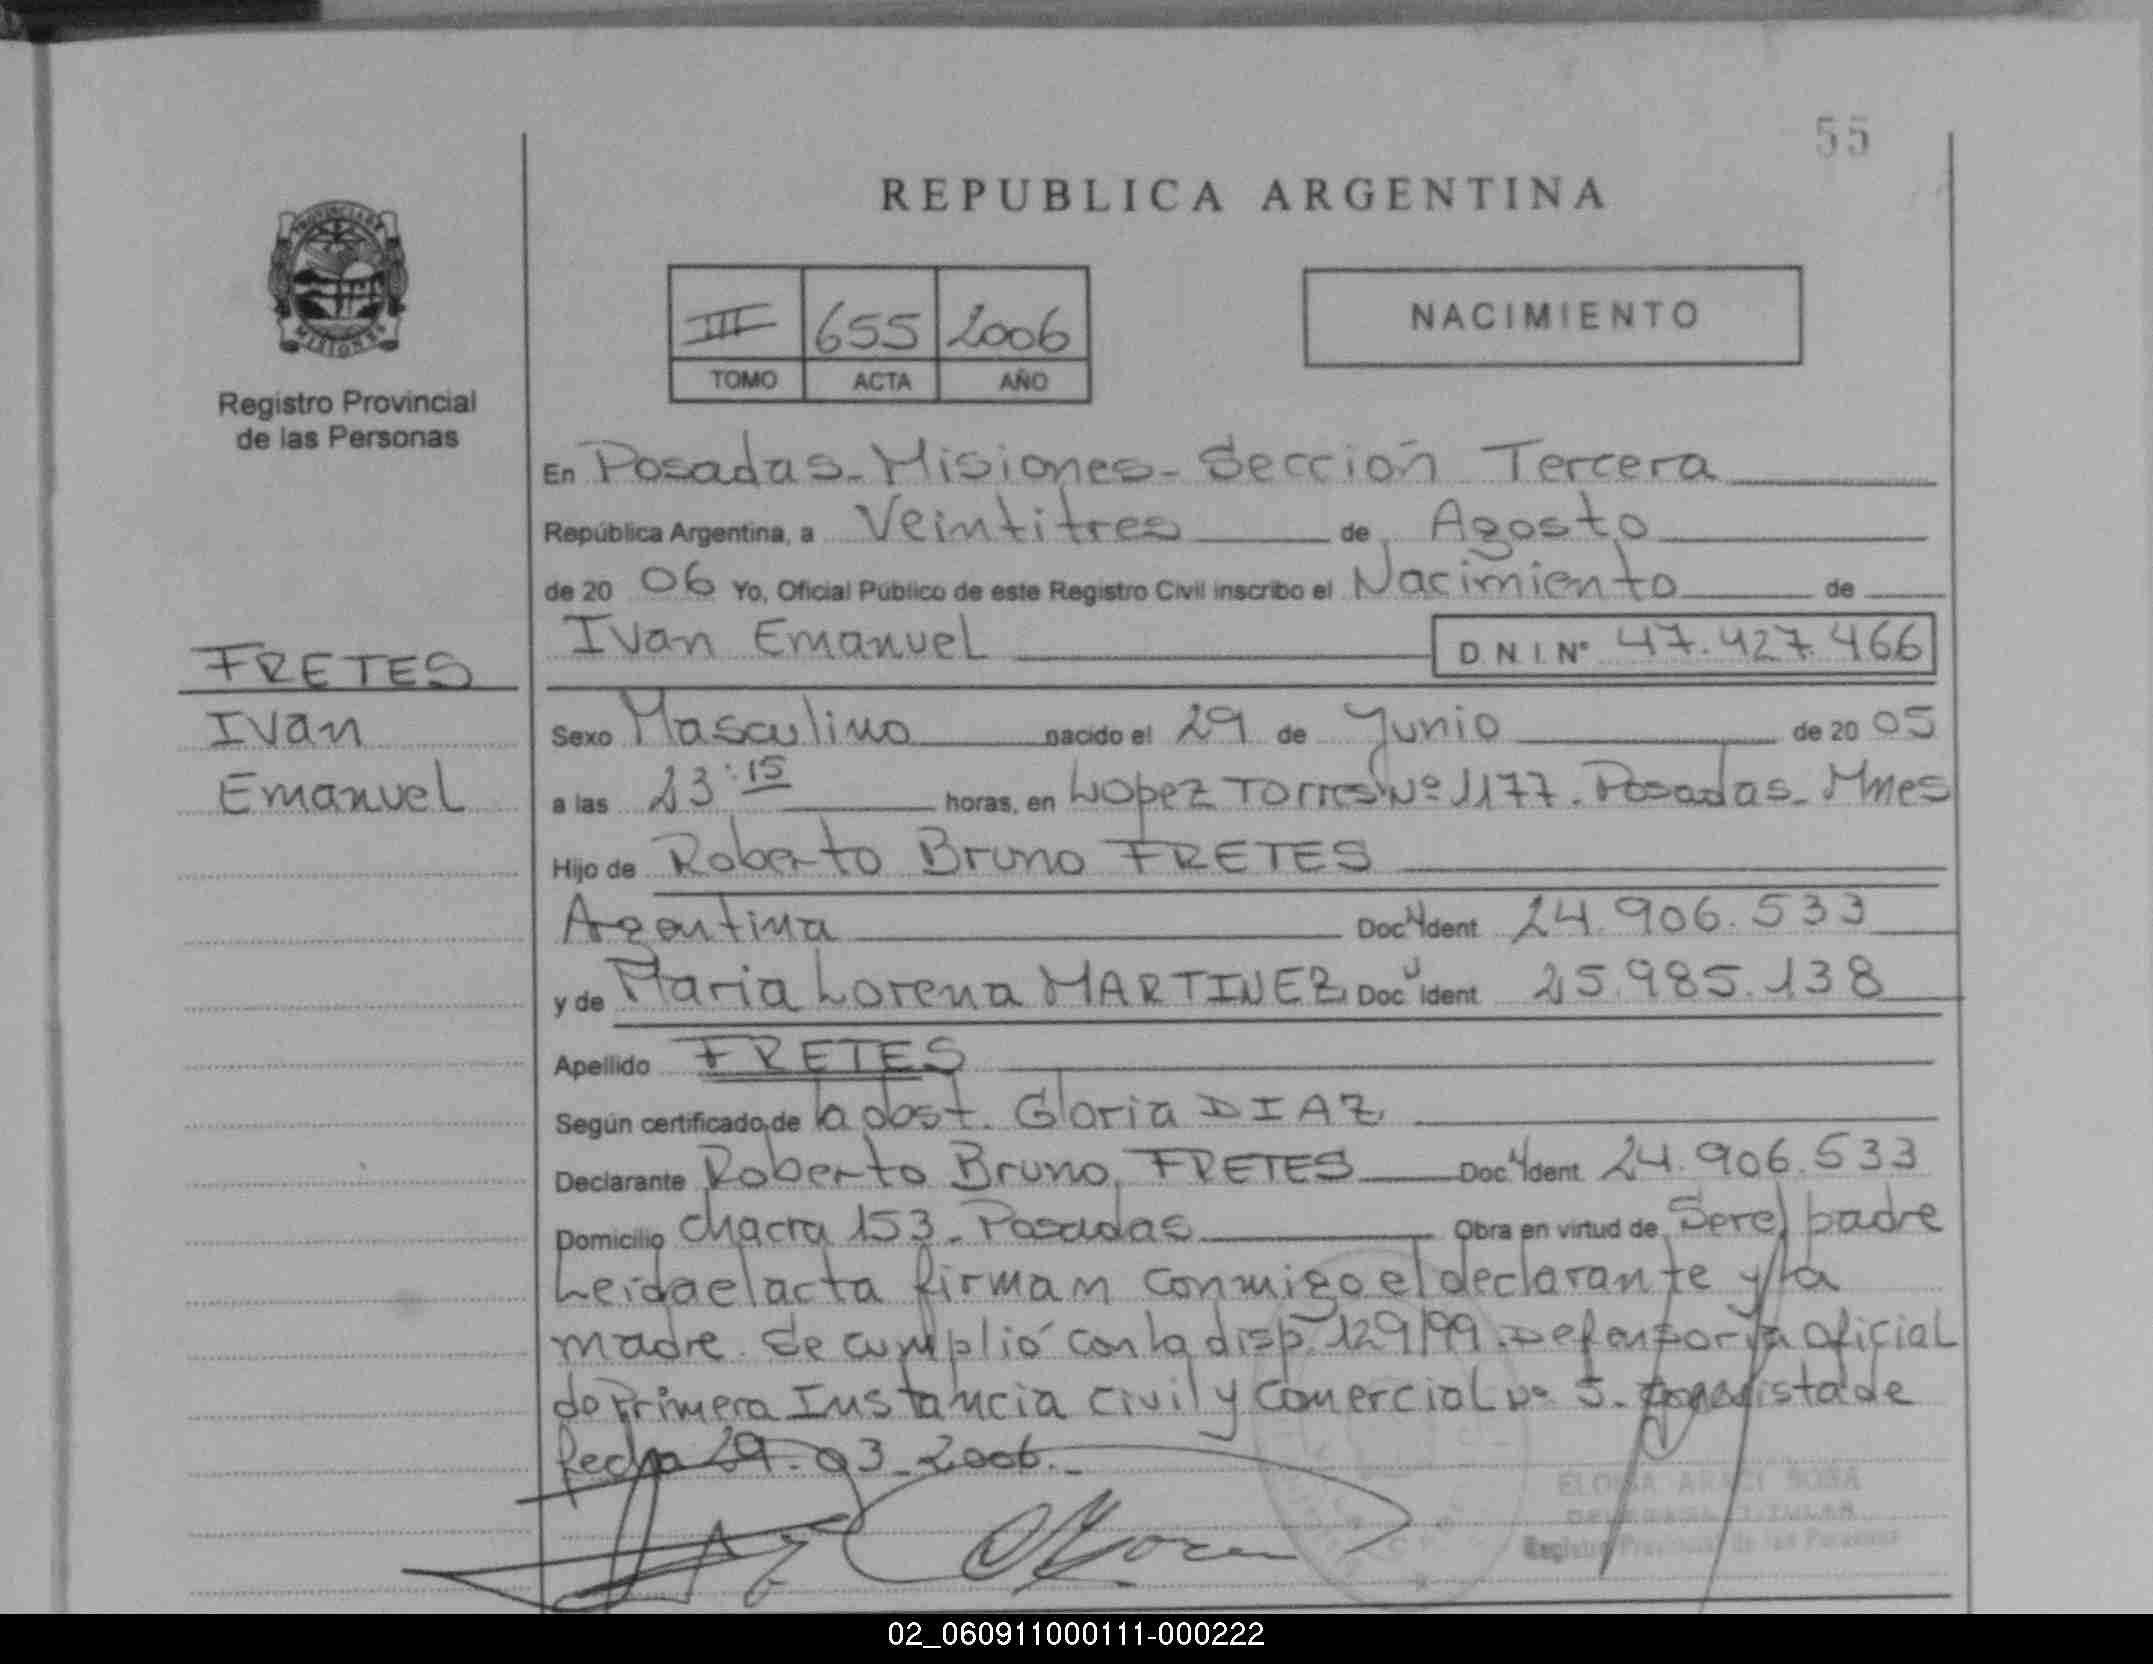 55
REPUBLICA ARGENTINA
PROVINCIA DE
MISIONES
Registro Provincial
de las Personas
III 655 2006
TOMO ACTA AÑO
NACIMIENTO
En Posadas - Misiones - Sección Tercera
República Argentina, a Veintitres de Agosto
de 20 06 Yo, Oficial Público de este Registro Civil inscribo el Nacimiento de
Ivan Emanuel D N I Nº 47.427.466
FRETES
Ivan
Emanuel
Sexo Masculino nacido el 29 de Junio de 20 05
a las 23:15 horas, en Lopez Torres Nº 1177. Posadas - Mnes
Hijo de Roberto Bruno FRETES
Argentina Doc Ident 24.906.533
y de Maria Lorena MARTINEZ Doc Ident 25.985.138
Apellido FRETES
Según certificado de la obst. Gloria DIAZ
Declarante Roberto Bruno FRETES Doc Ident 24.906.533
Domicilio chacra 153 - Posadas Obra en virtud de Ser el padre
Leida el acta firman conmigo el declarante y la
madre. Se cumplió con la disp. 129/99. Defensoria Oficial
de Primera Instancia Civil y Comercial nº 5. de
fecha 29-03-2006.
ELOISA ARACI SOSA
Registro Provincial de las Personas
02_060911000111-000222